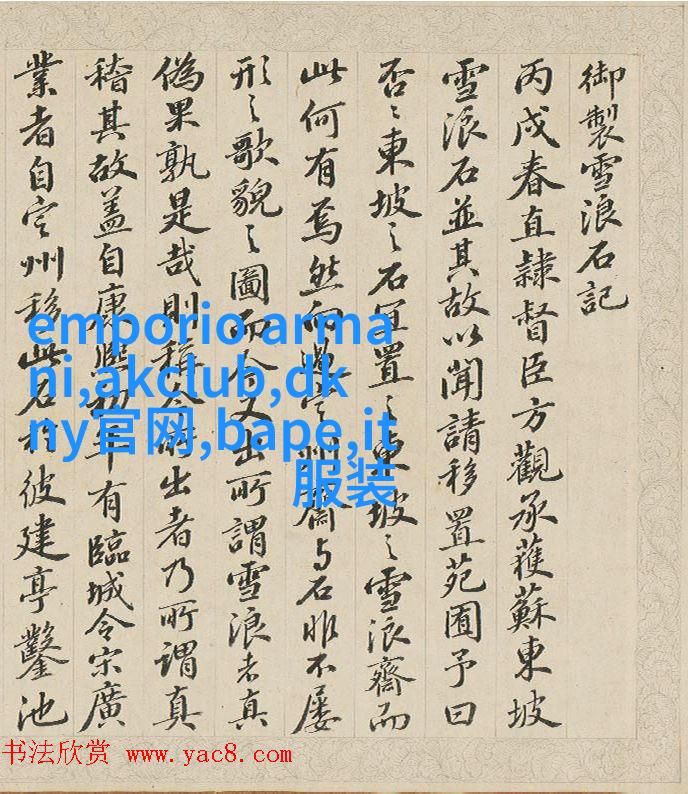 御製雪浪石記
丙戌春直隷督臣方觀承獲蘇東坡
雪浪石並其故以聞請移置苑囿予曰
否〻東坡之石宜置之東坡之雪浪齋而
此何有焉然而過定州齋与石非不屢
形之歌貌之圖而今又出所謂雪浪者真
偽果孰是哉則稱今所出者乃所謂真
稽其故盖自康熙初年有臨城令宋廣
業者自定州移此石於彼建亭鑿池
emporio arma
ni,akclub,dk
ny官网,bape,it
服装
书法欣赏 www.yac8.com